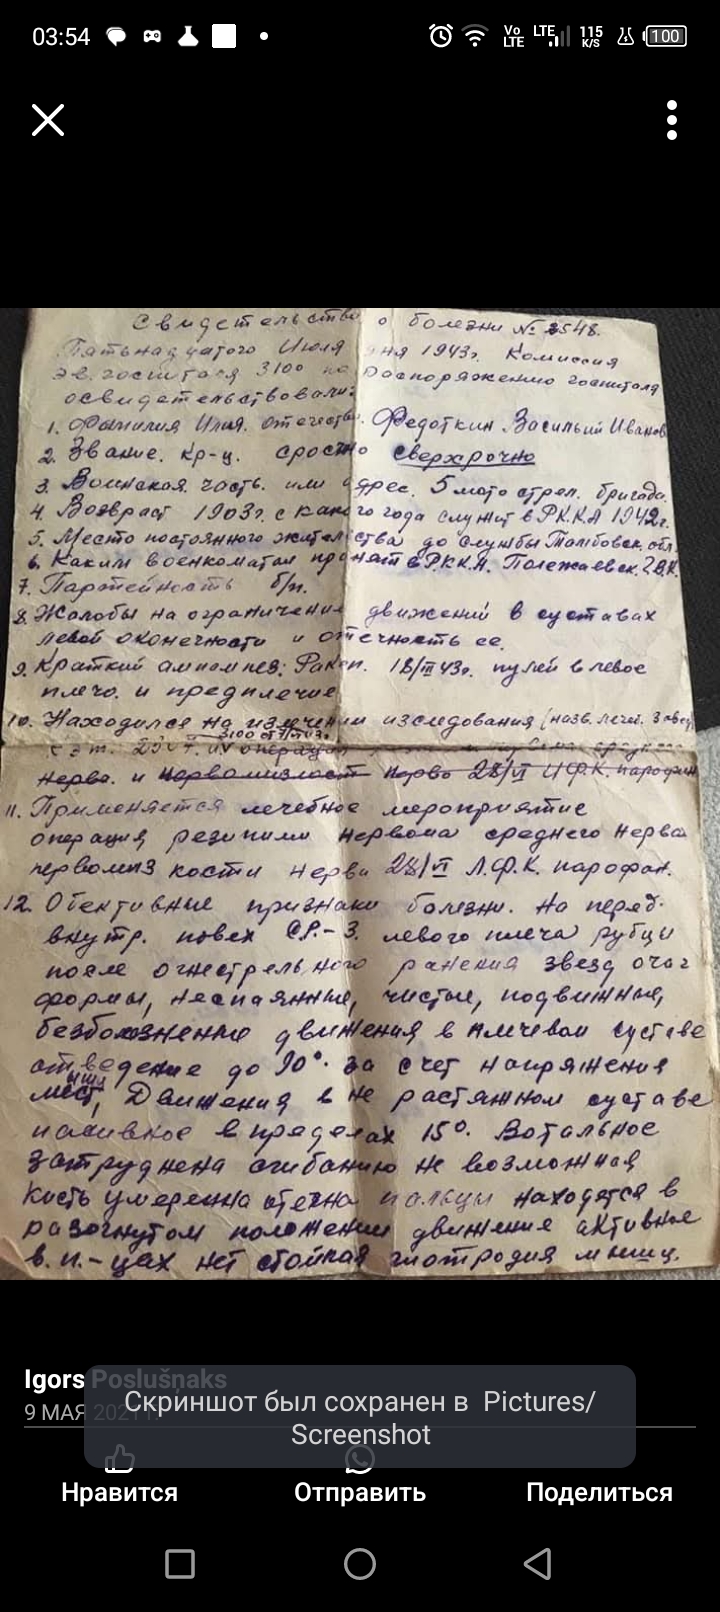 03:54
Vo LTE LTE 115 K/S 100
Свидетельство о болезни № 3548.
Пятьнадцатого Июля дня 1943г. Комиссия
эв. госпиталя 3100 по распоряжению госпиталя
освидетельствовали:
1. Фамилия Имя. отечество. Федоткин Василий Иванов
2. Звание. кр-ц. срочно сверхсрочно
3. Воинская. часть. или адрес. 5 мото стрел. бригада.
4. Возвраст 1903г. с какого года служит в РККА 1942г.
5. Место постоянного жительства до службы Тамбовск. обл.
6. Каким военкоматом принят в РККА. Полежаевск.
7. Партейность б/п.
8. Жалобы на ограничение движений в суставах
левой оконечности и отечность ее.
9. Краткий анномнез: Ранен. 18/III 43г. пулей в левое
плечо. и предплечие
10. Находился на излечении исследования (назв. лечеб. завед
3100 от
с эт. операция
нерва. и нерва 28/VI ЦФК. парофин
11. Применяется лечебное мероприятие
операция резикции неврома среднего нерва
кости нерва 28/VI Л.Ф.К. парофан.
12. Обективные признаки болезни. На перед.
внутр. повех С.Р.-3. левого плеча рубци
после огнестрельного ранения звезд очаг
формы, неспаянные, чистые, подвижные,
безболозненые движения в плечевом суставе
отведение до 90°. за счет напряжения
мышц
мест, Движения в не растяжном суставе
пасивное в пределах 15°. Вотальное
затруднена сгибанию не возможная
кисть умеренна отечна пальцы находятся в
разогнутом положении движение активное
в. п.-цах нет стойкая мышц.
Igors Poslušņaks
9 МАЯ 2021 г.
Скриншот был сохранен в Pictures/
Screenshot
Нравится Отправить Поделиться